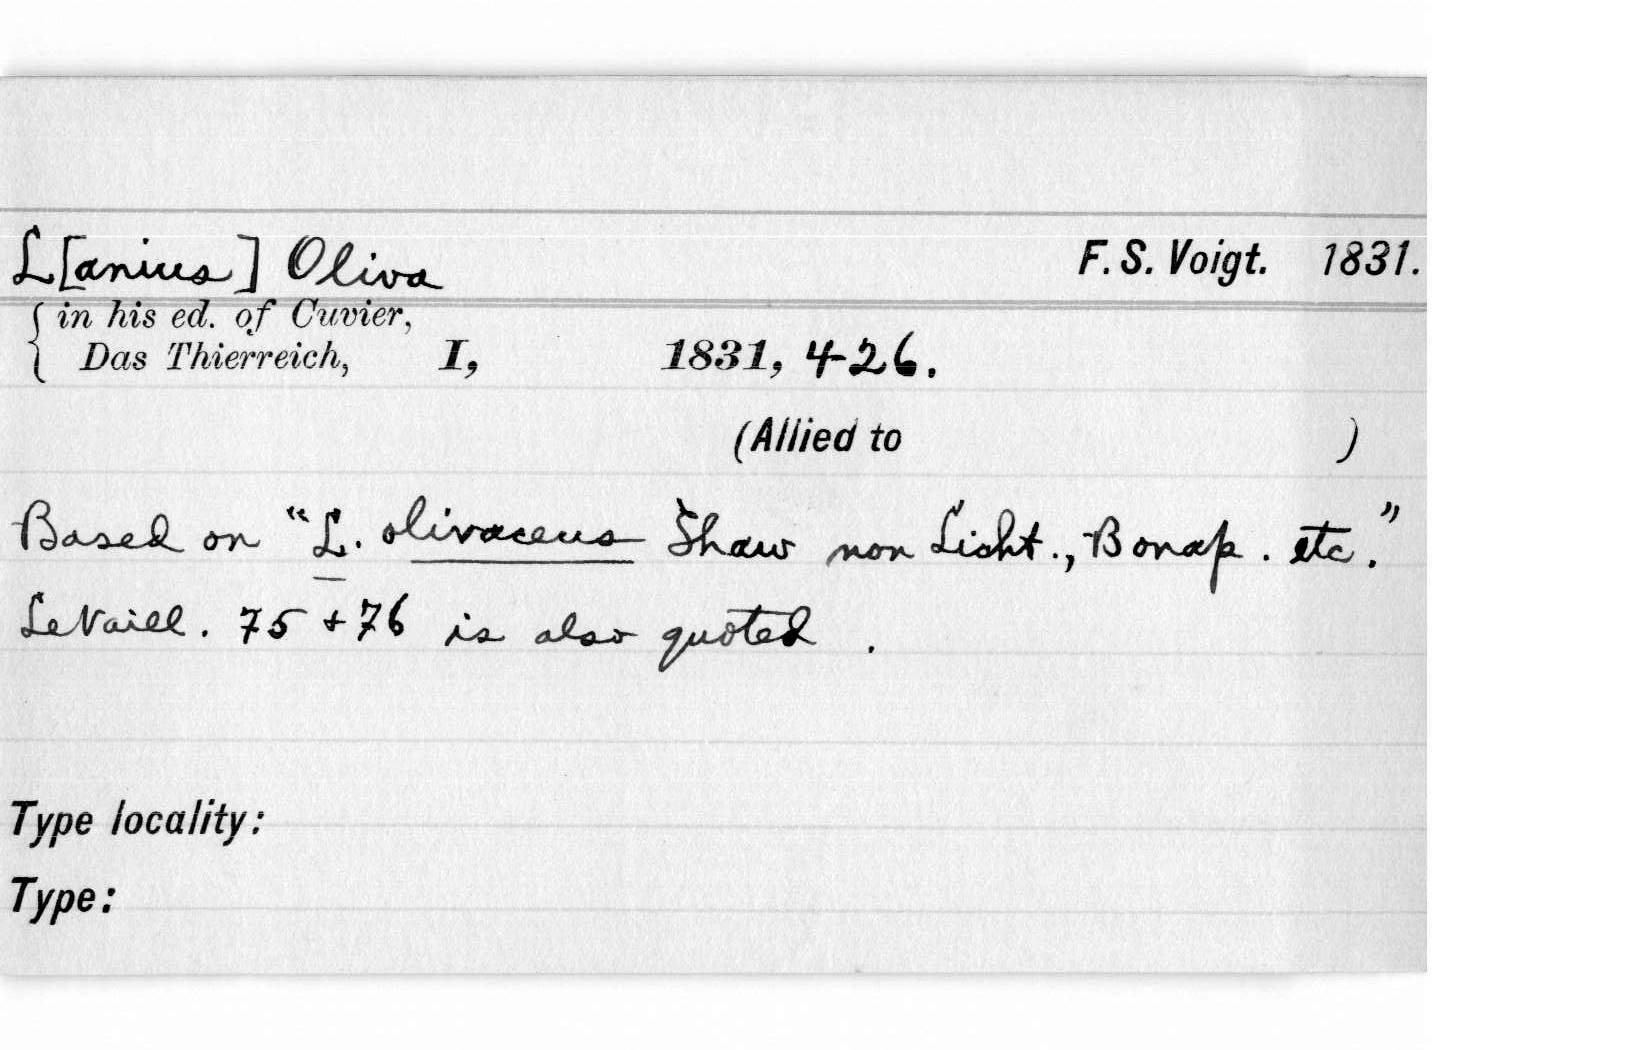 L[anius] Oliva F. S. Voigt. 1831.
in his ed. of Cuvier,
Das Thierreich, I, 1831, 426.
(Allied to )
Based on "L. olivaceus Shaw non Licht., Bonap. etc."
LeVaill. 75 + 76 is also quoted .
Type locality:
Type: